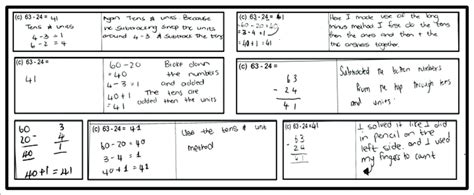 (c) 63 - 24 = 41
Tens & units
4 - 3 = 1
6 - 2 = 4
Again Tens & units Because
the Subtracting swap the units
around 4 - 3 & Subtract the Tens
(c) 63 - 24 = 41
- 24
41
How I made use of the long
minus method I first do the tens
then the ones and then
the answers together.
(c) 63 - 24 =
41
60 - 20
= 40
4 - 3 = 1
40 + 1 =
41
Broke down
the numbers
and added
The tens are
added then the units
(c) 63 - 24 =
63
- 24
41
Subtracted the bottom numbers
from the top through tens
and units!
60 3
20 - 4
40 1
40 + 1 = 41
(c) 63 - 24 = 41
60 - 20 = 40
3 - 4 = 1
40 + 1 = 41
Use the tens & unit
method
(c) 63 - 24 = 41
63
- 24
41
I solved it like I did
in pencil on the
left side. and I used
my finger to count